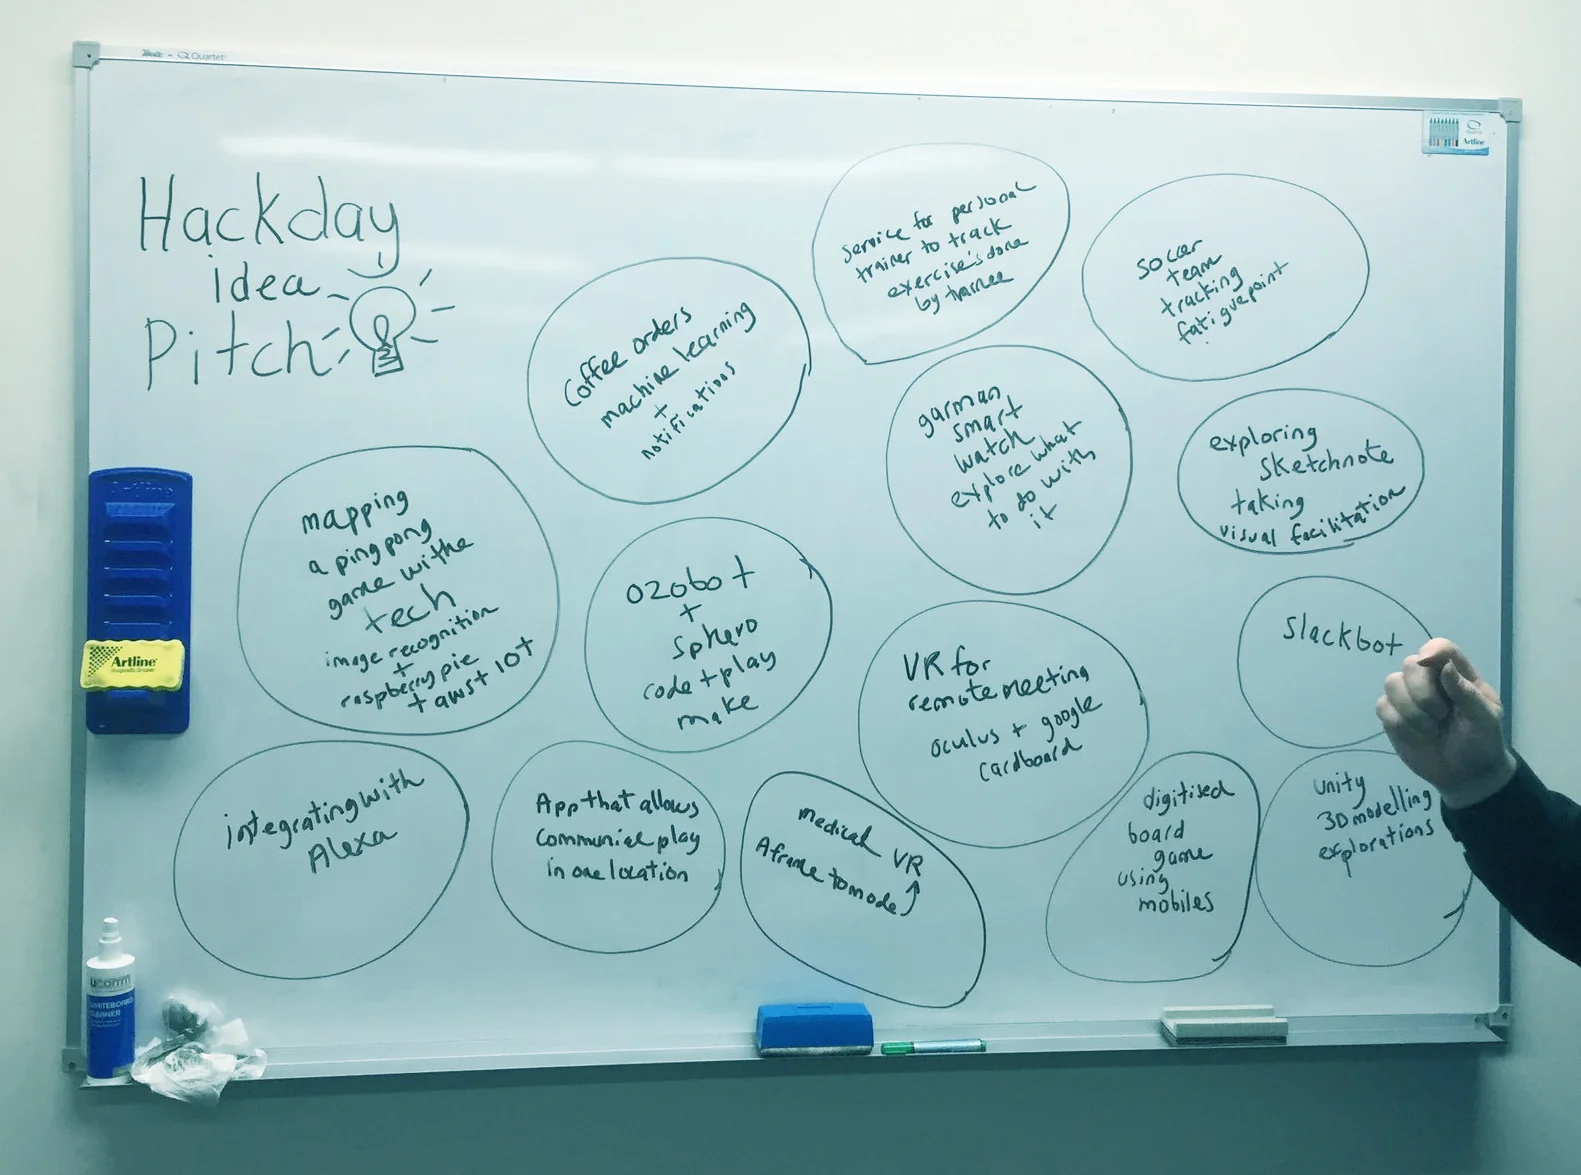 Quartet
Quartet
Artline
Hackday
idea
Pitch
service for personal
trainer to track
exercise's done
by trainee
soccer
team
tracking
fatiguepoint
Coffee orders
machine learning
+
notifications
garman
smart
watch
explore what
to do with
it
exploring
sketchnote
taking
visual facilitation
mapping
a ping pong
game withe
tech
image recognition
+
raspberry pie
+ aws + IOT
ozobot
+
sphero
code + play
make
VR for
remote meeting
oculus + google
cardboard
slackbot
integrating with
Alexa
App that allows
communial play
in one location
medical VR
Aframe to mode
digitised
board
game
using
mobiles
unity
3D modelling
explorations
Artline
ucomm
WHITEBOARD
CLEANER